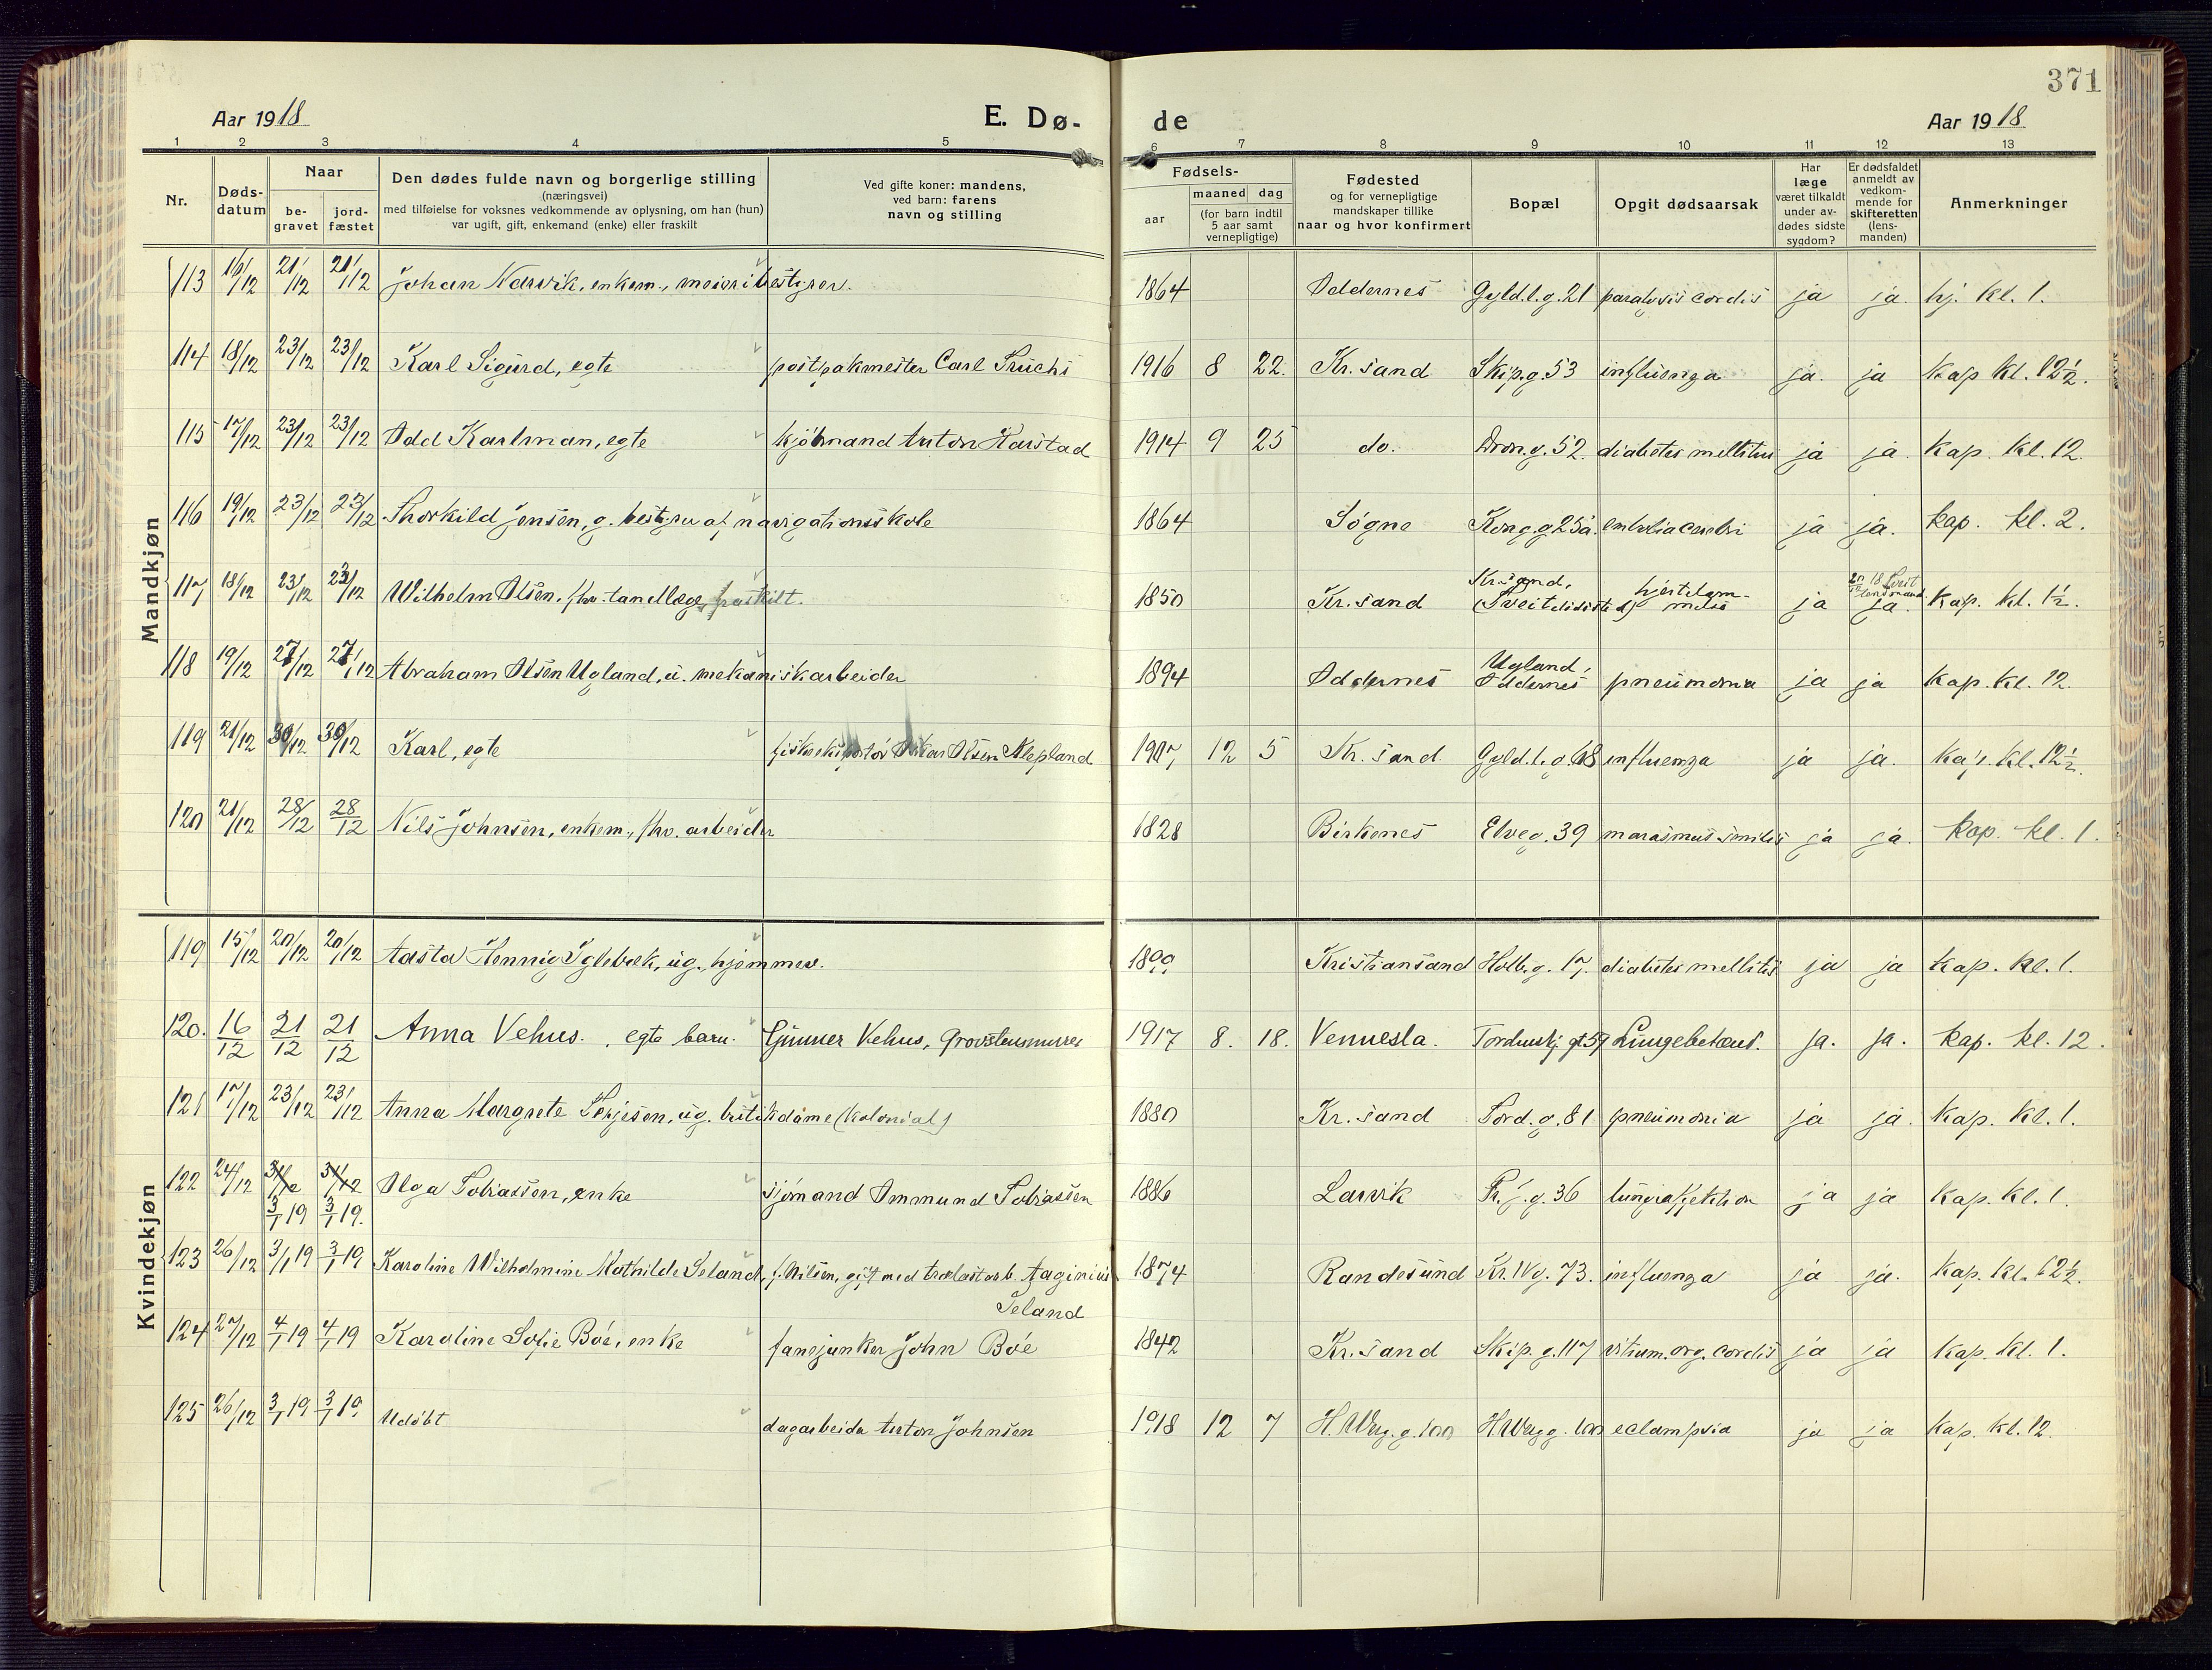 371
Aar 1918
E. Dø-
de
Aar 1918
1 2 3 4 5 6 7 8 9 10 11 12 13
Nr.
Døds-
datum
Naar
be-
gravet
jord-
fæstet
Den dødes fulde navn og borgerlige stilling
(næringsvei)
med tilføielse for voksnes vedkommende av oplysning, om han (hun)
var ugift, gift, enkemand (enke) eller fraskilt
Ved gifte koner: mandens,
ved barn: farens
navn og stilling
Fødsels-
aar
maaned dag
(for barn indtil
5 aar samt
vernepligtige)
Fødested
og for vernepligtige
mandskaper tillike
naar og hvor konfirmert
Bopæl
Opgit dødsaarsak
Har
læge
været tilkaldt
under av-
dødes sidste
sygdom?
Er dødsfaldet
anmeldt av
vedkom-
mende for
skifteretten
(lens-
manden)
Anmerkninger
Mandkjøn
113 16/12 21/12 21/12 Johan Narvik, enkem., meieribestyrer. 1864 Oddernes Gyld.l.g. 21 paralysis cordis ja ja. hj. kl. 1.
114 18/12 23/12 23/12 Karl Sigurd, egte postpakmester Carl 1916 8 22. Kr.sand Skip.g. 53 influenza ja. ja kap kl. 12½.
115 17/12 23/12 23/12 Odd Karlman, egte kjøbmand Anton Harstad 1914 9 25 do. Dron.g. 52. diabetes mellitus ja ja. kap. kl. 12.
116 19/12 23/12 23/12 Thorkild Jensen, g. bestyrer af navigationsskole 1864 Søgne Kong.g. 25a. embolia cerebri ja ja. kap. kl. 2.
117 18/12 23/12 23/12 Wilhelm Olsen, fhv. tandlæge, fraskilt. 1850 Kr.sand Kr.sand, (Tveit ja ja. kap. kl. 1½.
118 19/12 27/12 27/12 Abraham Olsen Ugland, u. mekanisk arbeider 1894 Oddernes Ugland, Oddernes pneumonia ja ja kap. kl. 12.
119 21/12 30/12 30/12 Karl, egte fiskeeksportør Oskar Olsen Klepland 1917 12 5 Kr.sand Gyld.l.g. 18 influenza ja ja. kap. kl. 12½.
120 21/12 28/12 28/12 Nils Johnsen, enkem., fhv. arbeider 1828 Birkenes Elveg. 39 marasmus senilis ja ja. kap. kl. 1.
Kvindekjøn
119 15/12 20/12 20/12 Aasta Hennig Iglebæk, ug., hjemmev. 1899 Kristiansand Holb.g. 17. diabetes mellitus ja ja kap. kl. 1.
120. 16/12 21/12 21/12 Anna Vehus. egte barn. Gunner Vehus, Grovstensmurer 1917 8. 18. Vennesla. Tordenskj. gt 59 Lungebetænd. ja. ja. kap. kl. 12.
121 17/12 23/12 23/12 Anna Margrete Terjesen, ug. butikdame (kolonial) 1880 Kr.sand Tord.g. 81 pneumonia ja ja. kap. kl. 1.
122 24/12 31/12 31/12 Olga Tobiassen, enke sjømand Ommund Tobiassen 1886 Larvik Fr.j.g. 36 lungeaffektion ja ja kap. kl. 1.
3/1 19 3/1 19.
123 26/12 3/1 19 3/1 19 Karoline Wilhelmine Mathilde Seland, f. Nilsen, gift med trælastarb. Taginius 1874 Randesund Kr.IVg. 73. influenza ja ja. kap. kl. 12½.
Seland
124 27/12 4/1 19 4/1 19 Karoline Sofie Boe, enke fanejunker John Boe 1842 Kr.sand Skip.g. 117 vitium. org. cordis ja ja kap. kl. 1.
125 26/12 3/1 19 3/1 19 Udøbt dagarbeider Anton Johnsen 1918 12 7 H.Werg.g. 100 H.Werg.g. 100 eclampsia ja ja kap. kl. 12.